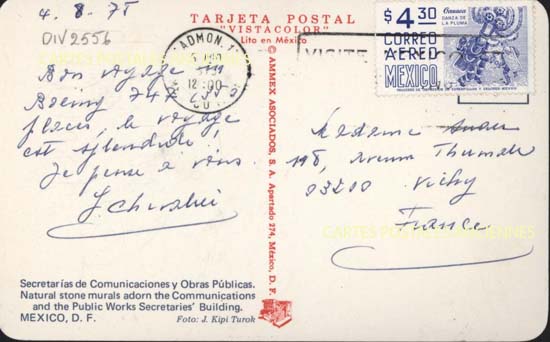 4. 8. 75
DIV2556
TARJETA POSTAL
"VISTACOLOR"
Lito en México
ADMON. 1
12:00
VISITE
Oaxaca
DANZA DE
LA PLUMA
$4.30
CORREO
AEREO
MEXICO
Bon voyage
Boeing 747
places, le voyage
est splendide!
Je pense à vous
© AMMEX ASOCIADOS, S. A. Apartado 274, México, D. F.
Madame
198, Avenue Thermale
03200 Vichy
France
CARTES POSTALES ANCIENNES
Secretarías de Comunicaciones y Obras Públicas.
Natural stone murals adorn the Communications
and the Public Works Secretaries' Building.
MEXICO, D. F.
Foto: J. Kipi Turok